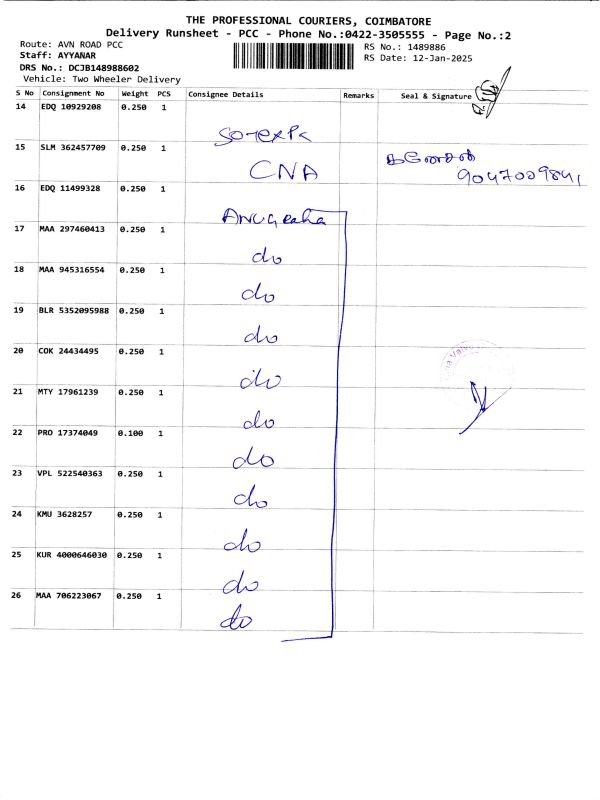 THE PROFESSIONAL COURIERS, COIMBATORE
Delivery Runsheet - PCC - Phone No.:0422-3505555 - Page No.:2
Route: AVN ROAD PCC
RS No.: 1489886
Staff: AYYANAR
RS Date: 12-Jan-2025
DRS No.: DCJB148988602
Vehicle: Two Wheeler Delivery
S No Consignment No Weight PCS Consignee Details Remarks Seal & Signature
14 EDQ 10929208 0.250 1
15 SLM 362457709 0.250 1 CNA கணேசன்
16 EDQ 11499328 0.250 1 Anugraha
17 MAA 297460413 0.250 1 do
18 MAA 945316554 0.250 1 do
19 BLR 5352095988 0.250 1 do
20 COK 24434495 0.250 1 do
21 MTY 17961239 0.250 1 do
22 PRO 17374049 0.100 1 do
23 VPL 522540363 0.250 1 do
24 KMU 3628257 0.250 1 do
25 KUR 4000646030 0.250 1 do
26 MAA 706223067 0.250 1 do